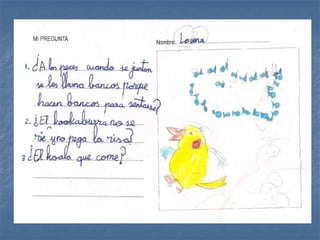 MI PREGUNTA
Nombre: Lorena
1. ¿A los peces cuando se juntan
se les llama bancos porque
hacen bancos para sentarse?
2. ¿El kookaburra no se
ríe y no pega la risa?
3 ¿El koala que come?